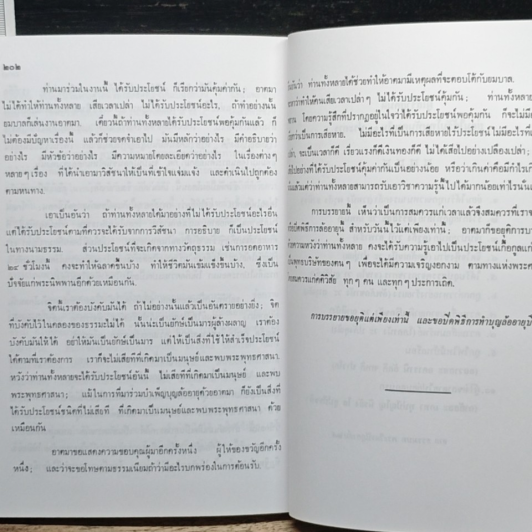 ๒๐๒
ท่านมาร่วมในงานนี้ ได้รับประโยชน์ ก็เรียกว่ามันคุ้มค่ากัน; อาตมา
ไม่ได้ทำให้ท่านทั้งหลาย เสียเวลาเปล่า ไม่ได้รับประโยชน์อะไร, ถ้าทำอย่างนั้น
ยมบาลก็เล่นงานอาตมา. เดี๋ยวนี้ถ้าท่านทั้งหลายได้รับประโยชน์พอคุ้มกันแล้ว ก็
ไม่ต้องมีปัญหาเรื่องนี้ แล้วก็ช่วยจดจำเอาไป มันมีหลักว่าอย่างไร มีคำอธิบายว่า
อย่างไร มีหัวข้อว่าอย่างไร มีความหมายโดยละเอียดว่าอย่างไร ในเรื่องต่างๆ
หลายๆ เรื่อง ที่ได้นำเอามาวิสัชนาให้เป็นที่เข้าใจแจ่มแจ้ง และดำเนินไปถูกต้อง
ตามหนทาง.
เอาเป็นอันว่า ถ้าท่านทั้งหลายได้มาอย่างที่ไม่ได้รับประโยชน์อะไรอื่น
แต่ได้รับประโยชน์ตามที่ควรจะได้รับจากการวิสัชนา การอธิบาย ก็เป็นประโยชน์
ในทางนามธรรม. ส่วนประโยชน์ที่จะเกิดจากทางวัตถุธรรม เช่นการอดอาหาร
๒๔ ชั่วโมงนี้ คงจะทำให้ฉลาดขึ้นบ้าง ทำให้ชีวิตมันเข้มแข็งขึ้นบ้าง, ซึ่งเป็น
ปัจจัยแก่พระนิพพานอีกด้วยเหมือนกัน.
จิตนี้เราต้องบังคับมันได้ ถ้าไม่อย่างนั้นแล้วเป็นอันตรายอย่างยิ่ง; จิต
ที่บังคับไว้ในคลองของธรรมะไม่ได้ นั้นน่ะเป็นยักษ์เป็นมารผู้ล้างผลาญ เราต้อง
บังคับมันให้ได้ อย่าให้มันเป็นยักษ์เป็นมาร แต่ให้เป็นสิ่งซึ่งใช้ให้สำเร็จประโยชน์
ได้ตามที่เราต้องการ เราก็จะไม่เสียทีที่เกิดมาเป็นมนุษย์และพบพระพุทธศาสนา
หวังว่าท่านทั้งหลายจะได้รับประโยชน์อันนี้ ไม่เสียทีที่เกิดมาเป็นมนุษย์ และพบ
พระพุทธศาสนา; แม้ในการที่มาร่วมบำเพ็ญบุญล้ออายุด้วยอาตมา ก็ยังเป็นสิ่งที่
ได้รับประโยชน์ชนิดที่ไม่เสียที ที่เกิดมาเป็นมนุษย์และพบพระพุทธศาสนา ด้วย
เหมือนกัน
อาตมาขอแสดงความขอบคุณผู้มาอีกครั้งหนึ่ง ผู้ให้ของขวัญอีกครั้ง
หนึ่ง; และว่าจะขอโทษตามธรรมเนียมถ้าว่ามีอะไรบกพร่องในการต้อนรับ.
ท่านทั้งหลายได้ช่วยทำให้อาตมามีเหตุผลที่จะตอบโต้กับยมบาล.
ว่าทำให้คนเสียเวลาเปล่าๆ ไม่ได้รับประโยชน์คุ้มกัน; ท่านทั้งหลาย
โดยความรู้สึกที่ปรากฏอยู่ในใจว่าได้รับประโยชน์พอคุ้มกัน ก็จะไม่มี
ว่าเป็นการเสียหาย. ไม่มีอะไรที่เป็นการเสียหายไร้ประโยชน์
จะเป็นเวลาก็ดี เรี่ยวแรงก็ดี เงินทองก็ดี ไม่ได้เสียไปอย่างเปลืองเปล่า;
อย่างที่ได้รับประโยชน์คุ้มค่ากันเป็นอย่างน้อย หรือว่าเกินค่าคือมีกำไร
แล้วแต่ว่าท่านทั้งหลายสามารถรับเอาวิชาความรู้นี้ไปได้มากน้อยเท่าไร
การบรรยายนี้ เห็นว่าเป็นการสมควรแก่เวลาแล้วจึงสมควรที่เรา
พิธีการล้ออายุนี้ สำหรับวันนี้ไว้แต่เพียงเท่านี้; อาตมาก็ขอยุติการบรรยาย
ความหวังว่าท่านทั้งหลาย คงจะได้รับความรู้เอาไปเป็นประโยชน์เกื้อกูลแก่
พุทธบริษัทของตนๆ เพื่อจะได้มีความเจริญงอกงาม ตามทางแห่งพระ
สมควรแก่สติวิสัย ทุกๆ คน และทุกๆ ประการเถิด.
การบรรยายขอยุติแต่เพียงเท่านี้ และขอปิดพิธีการทำบุญล้ออายุ